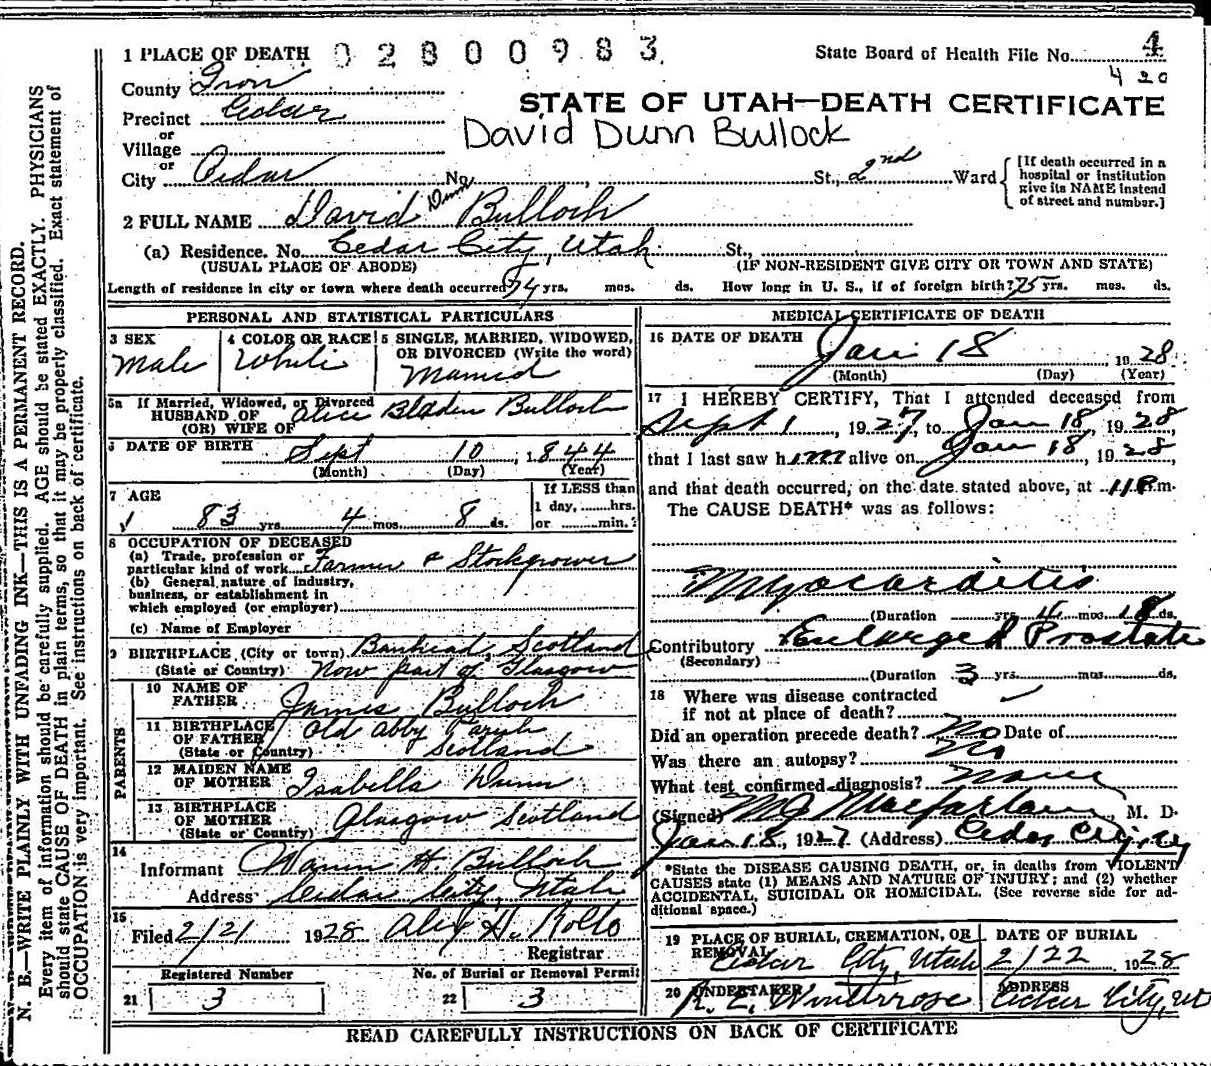 1 PLACE OF DEATH 02800983
State Board of Health File No. 4
420
County Iron
STATE OF UTAH—DEATH CERTIFICATE
Precinct Cedar
David Dunn Bullock
or
Village
or
City Cedar No. St., 2nd Ward
[If death occurred in a hospital or institution give its NAME instead of street and number.]
2 FULL NAME David Dunn Bulloch
(a) Residence. No. Cedar City, Utah St.,
(USUAL PLACE OF ABODE) (IF NON-RESIDENT GIVE CITY OR TOWN AND STATE)
Length of residence in city or town where death occurred 74 yrs. mos. ds. How long in U. S., if of foreign birth? 75 yrs. mos. ds.
PERSONAL AND STATISTICAL PARTICULARS
3 SEX 4 COLOR OR RACE 5 SINGLE, MARRIED, WIDOWED,
OR DIVORCED (Write the word)
Male White Married
5a If Married, Widowed, or Divorced
HUSBAND OF Alice Bladen Bulloch
(OR) WIFE OF
6 DATE OF BIRTH Sept 10, 1844
(Month) (Day) (Year)
7 AGE If LESS than
1 day, hrs.
83 yrs 4 mos 8 ds. or min.?
8 OCCUPATION OF DECEASED
(a) Trade, profession or
particular kind of work Farmer & Stockgrower
(b) General nature of industry,
business, or establishment in
which employed (or employer)
(c) Name of Employer
9 BIRTHPLACE (City or town) Scotland
(State or Country) Now part of Glasgow
PARENTS
10 NAME OF
FATHER James Bulloch
11 BIRTHPLACE Old Abby Parish
OF FATHER Scotland
(State or Country)
12 MAIDEN NAME
OF MOTHER Isabella Dunn
13 BIRTHPLACE
OF MOTHER Glasgow Scotland
(State or Country)
14
Informant Warren H. Bulloch
Address Cedar City, Utah
15
Filed 2/21 1928 Alex H. Rollo
Registrar
Registered Number No. of Burial or Removal Permit
21 3 22 3
MEDICAL CERTIFICATE OF DEATH
16 DATE OF DEATH Jan 18 1928
(Month) (Day) (Year)
17 I HEREBY CERTIFY, That I attended deceased from
Sept 1, 1927, to Jan 18, 1928,
that I last saw him alive on Jan 18, 1928,
and that death occurred, on the date stated above, at 11 P.m.
The CAUSE DEATH* was as follows:
Myocarditis
(Duration yrs. 4 mos. 18 ds.
Contributory Enlarged Prostate
(Secondary)
(Duration 3 yrs. mos. ds.
18 Where was disease contracted
if not at place of death?
Did an operation precede death? No Date of
Was there an autopsy? No
What test confirmed diagnosis? None
(Signed) M J Macfarlane, M. D.
Jan 18, 1927 (Address) Cedar City, U
*State the DISEASE CAUSING DEATH, or, in deaths from VIOLENT
CAUSES state (1) MEANS AND NATURE OF INJURY; and (2) whether
ACCIDENTAL, SUICIDAL OR HOMICIDAL. (See reverse side for ad-
ditional space.)
19 PLACE OF BURIAL, CREMATION, OR DATE OF BURIAL
REMOVAL Cedar City, Utah 2/22 1928
20 UNDERTAKER ADDRESS
R. E. Cedar City, Ut
READ CAREFULLY INSTRUCTIONS ON BACK OF CERTIFICATE
N. B.—WRITE PLAINLY WITH UNFADING INK—THIS IS A PERMANENT RECORD.
Every item of information should be carefully supplied. AGE should be stated EXACTLY. PHYSICIANS
should state CAUSE OF DEATH in plain terms, so that it may be properly classified. Exact statement of
OCCUPATION is very important. See instructions on back of certificate.